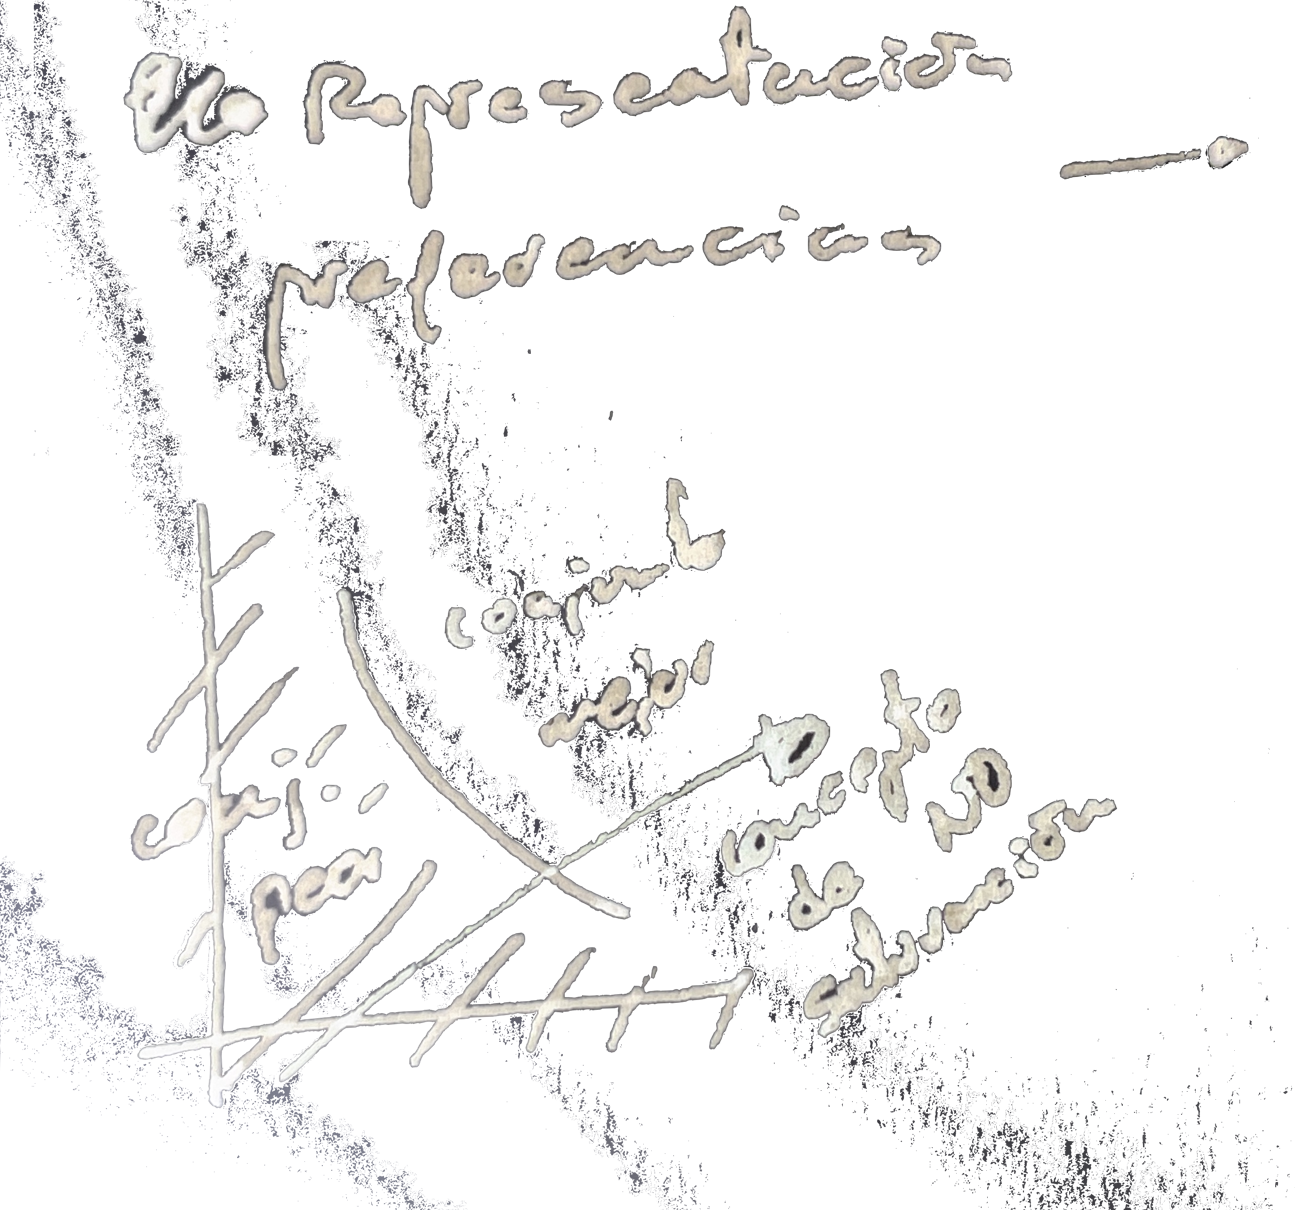 Representación
preferencias
conjunt
mejor
conj.
peor
concepto
de NO
saturación